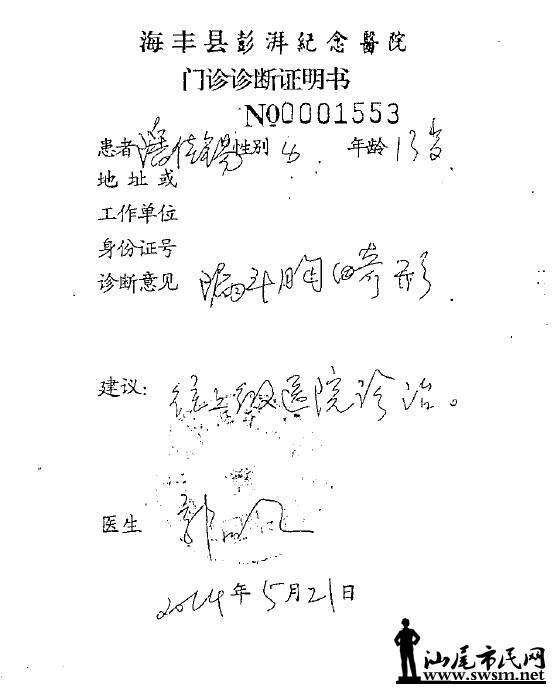 海丰县彭湃紀念醫院
门诊诊断证明书
NO0001553
患者 性别 年龄 13岁
地址或
工作单位
身份证号
诊断意见 漏斗胸畸形
建议: 往上级医院诊治。
医生 郭
2014年5月21日
汕尾市民网
www.swsm.net